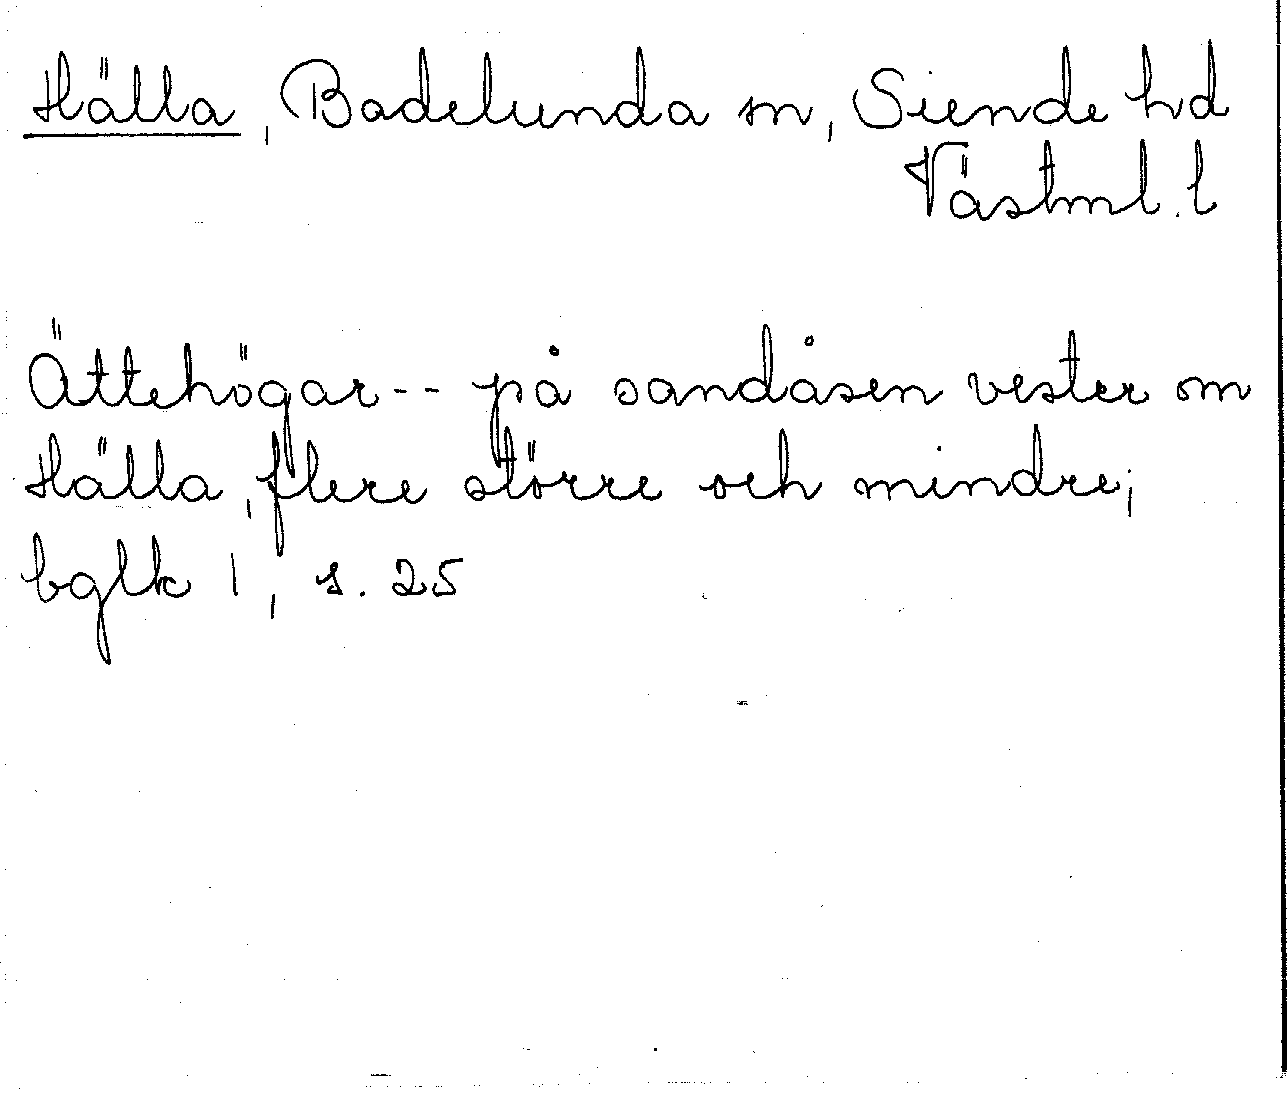 Hälla, Badelunda sn, Siende hd
Västml. l
Ättehögar -- på sandåsen vester om
Hälla, flere större och mindre;
bglk 1, s. 25